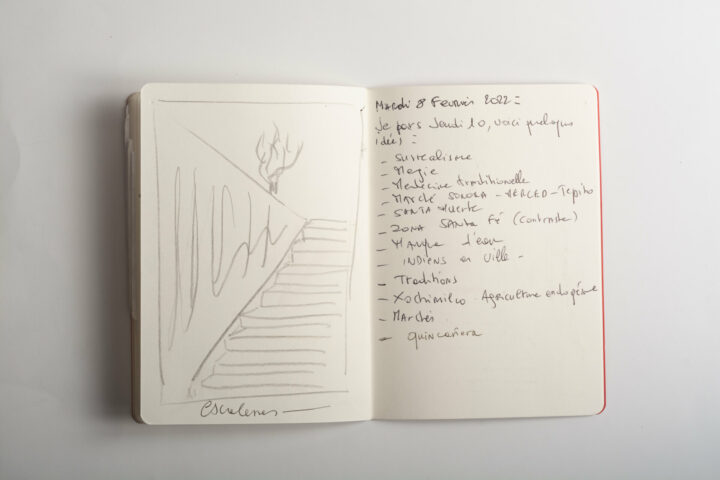 escaleras
Mardi 8 Février 2022 =
Je pars Jeudi 10, voici quelques
idées =
- Surréalisme
- Magie
- Medecine traditionelle
- Marché SONORA - MERCED - Tepito
- SANTA MUERTE
- ZONA SANTA FÉ (contraste)
- Manque d'eau
- INDIENS en ville -
- Traditions
- Xochimilco - Agriculture endogène
- Marchés
- quinceañera